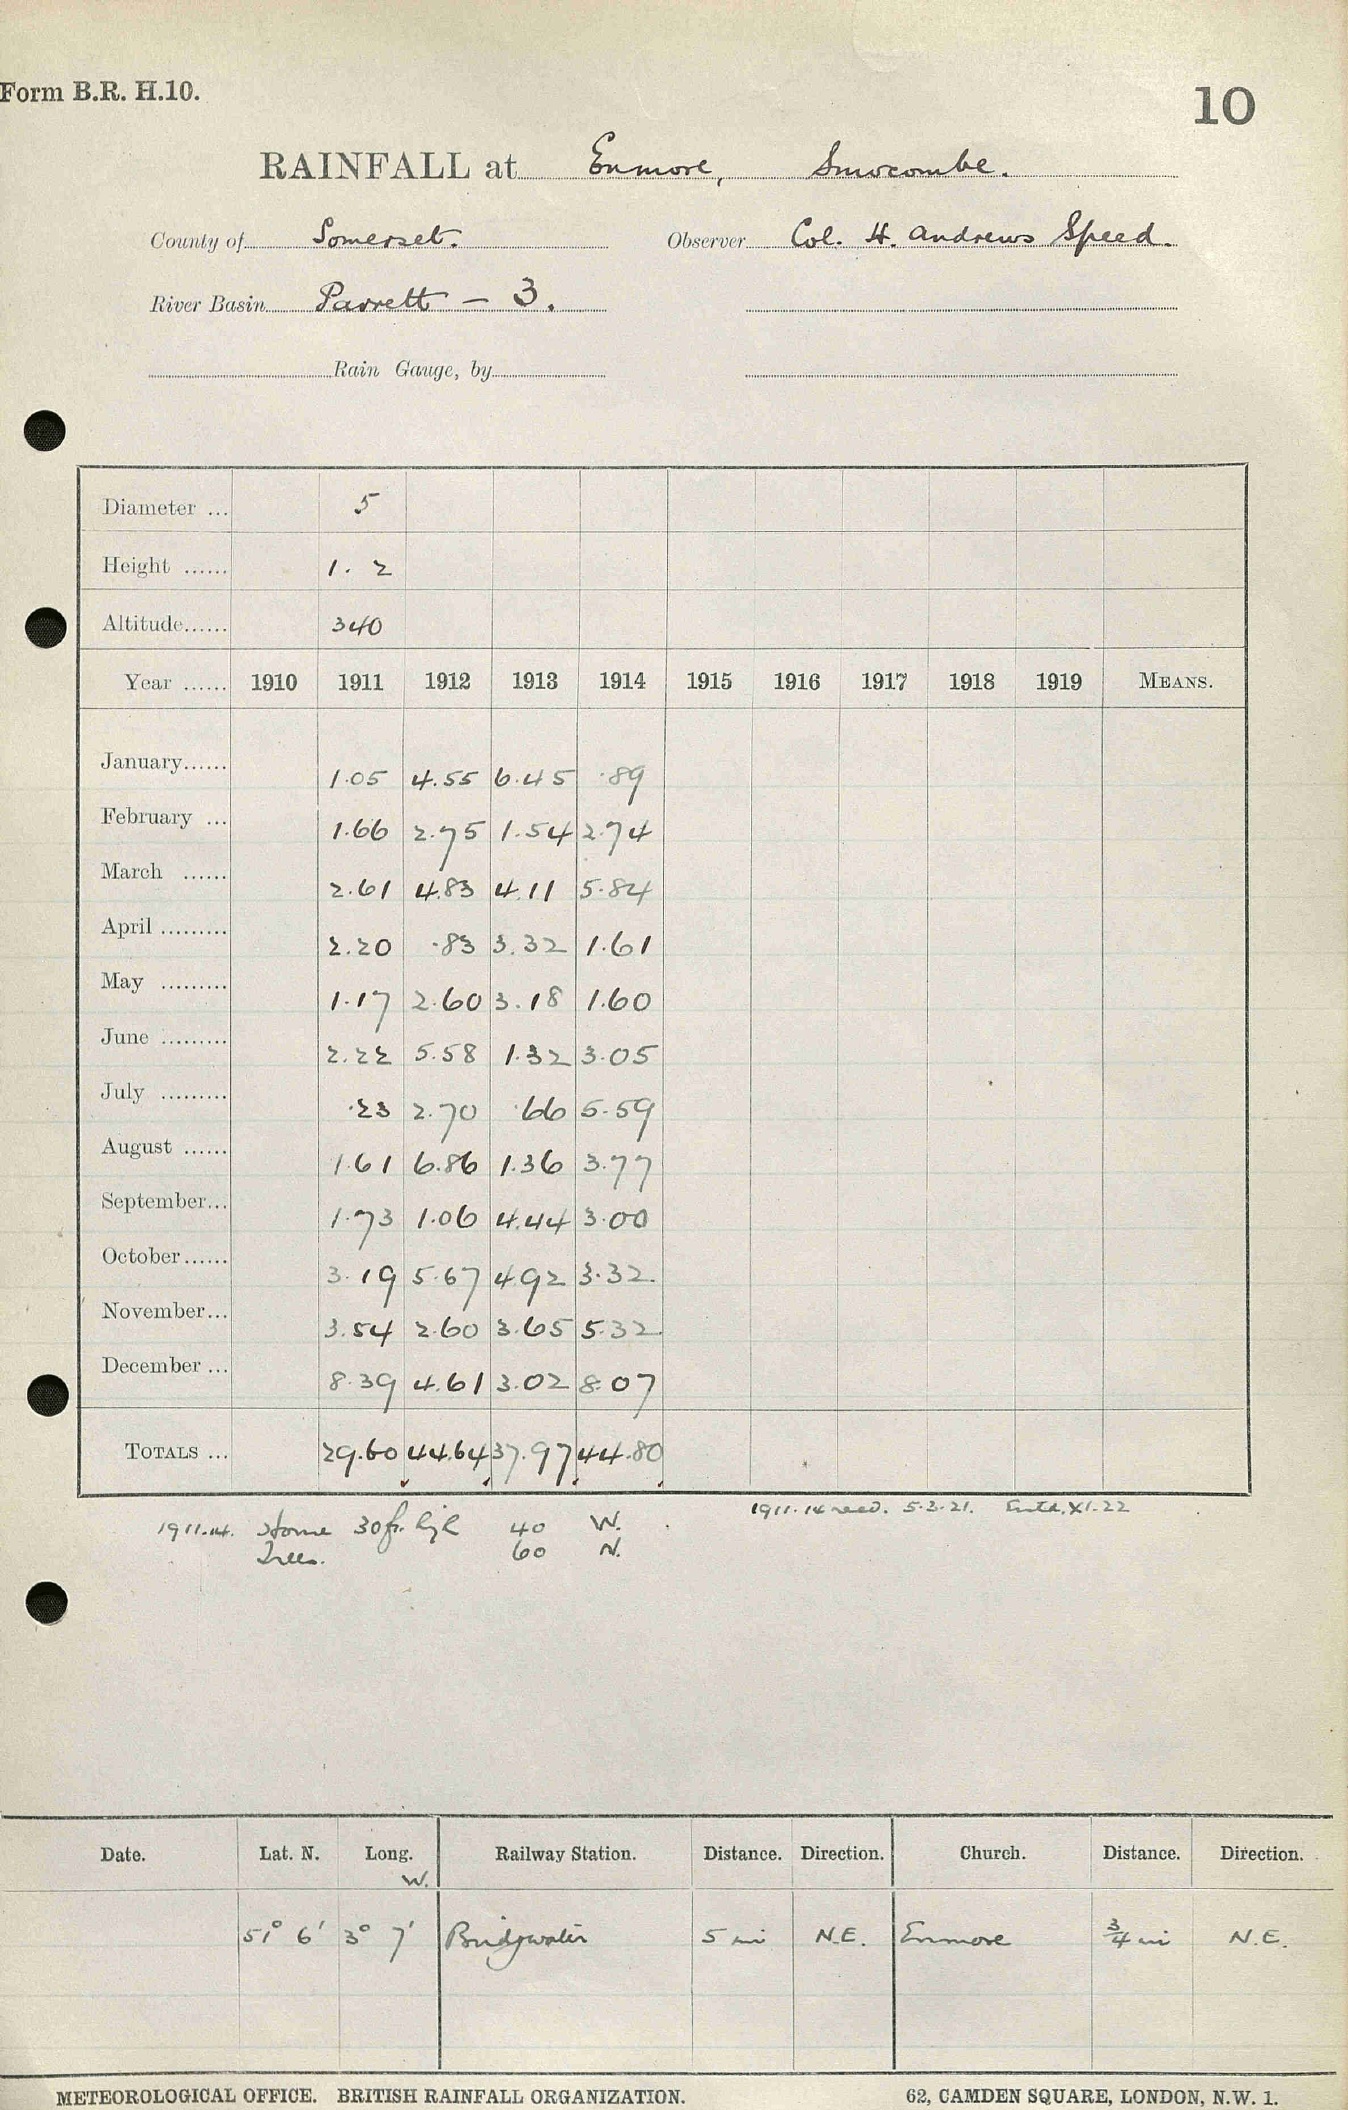 Form B.R. H.10.
10
RAINFALL at Enmore, Smocombe.
County of Somerset. Observer Col. H. Andrews Speed.
River Basin Parrett — 3.
Rain Gauge, by
Diameter ... 5
Height ...... 1. 2
Altitude...... 340
Year ...... 1910 1911 1912 1913 1914 1915 1916 1917 1918 1919 MEANS.
January...... 1.05 4.55 6.45 .89
February ... 1.66 2.75 1.54 2.74
March ...... 2.61 4.83 4.11 5.84
April ......... 2.20 .83 3.32 1.61
May ......... 1.17 2.60 3.18 1.60
June ......... 2.22 5.58 1.32 3.05
July ......... .23 2.70 .66 5.59
August ...... 1.61 6.86 1.36 3.77
September... 1.73 1.06 4.44 3.00
October...... 3.19 5.67 4.92 3.32
November... 3.54 2.60 3.65 5.32
December ... 8.39 4.61 3.02 8.07
TOTALS ... 29.60 44.64 37.97 44.80
1911-14 recd. 5.2.21. Entd. XI.22
1911-14. Home 30ft. 40 W.
Trees. 60 N.
Date. Lat. N. Long. W. Railway Station. Distance. Direction. Church. Distance. Direction.
51° 6' 3° 7' Bridgwater 5 mi N.E. Enmore 3/4 mi N.E.
METEOROLOGICAL OFFICE. BRITISH RAINFALL ORGANIZATION. 62, CAMDEN SQUARE, LONDON, N.W. 1.